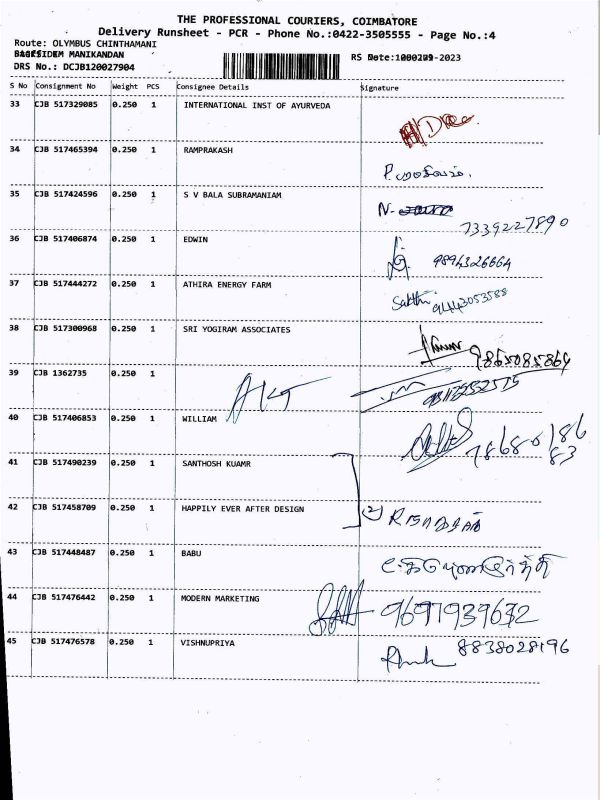 THE PROFESSIONAL COURIERS, COIMBATORE
Delivery Runsheet - PCR - Phone No.:0422-3505555 - Page No.:4
Route: OLYMBUS CHINTHAMANI
MANIKANDAN
RS Date: -2023
DRS No.: DCJB120027904
S No Consignment No Weight PCS Consignee Details Signature
33 CJB 517329085 0.250 1 INTERNATIONAL INST OF AYURVEDA
34 CJB 517465394 0.250 1 RAMPRAKASH
35 CJB 517424596 0.250 1 S V BALA SUBRAMANIAM N.
7339227890
36 CJB 517406874 0.250 1 EDWIN 9894326664
37 CJB 517444272 0.250 1 ATHIRA ENERGY FARM Sakthi 9443053588
38 CJB 517300968 0.250 1 SRI YOGIRAM ASSOCIATES
9865085864
39 CJB 1362735 0.250 1
40 CJB 517406853 0.250 1 WILLIAM 7868018683
41 CJB 517490239 0.250 1 SANTHOSH KUAMR
42 CJB 517458709 0.250 1 HAPPILY EVER AFTER DESIGN (2)
43 CJB 517448487 0.250 1 BABU
44 CJB 517476442 0.250 1 MODERN MARKETING 9697939632
45 CJB 517476578 0.250 1 VISHNUPRIYA 8838028196